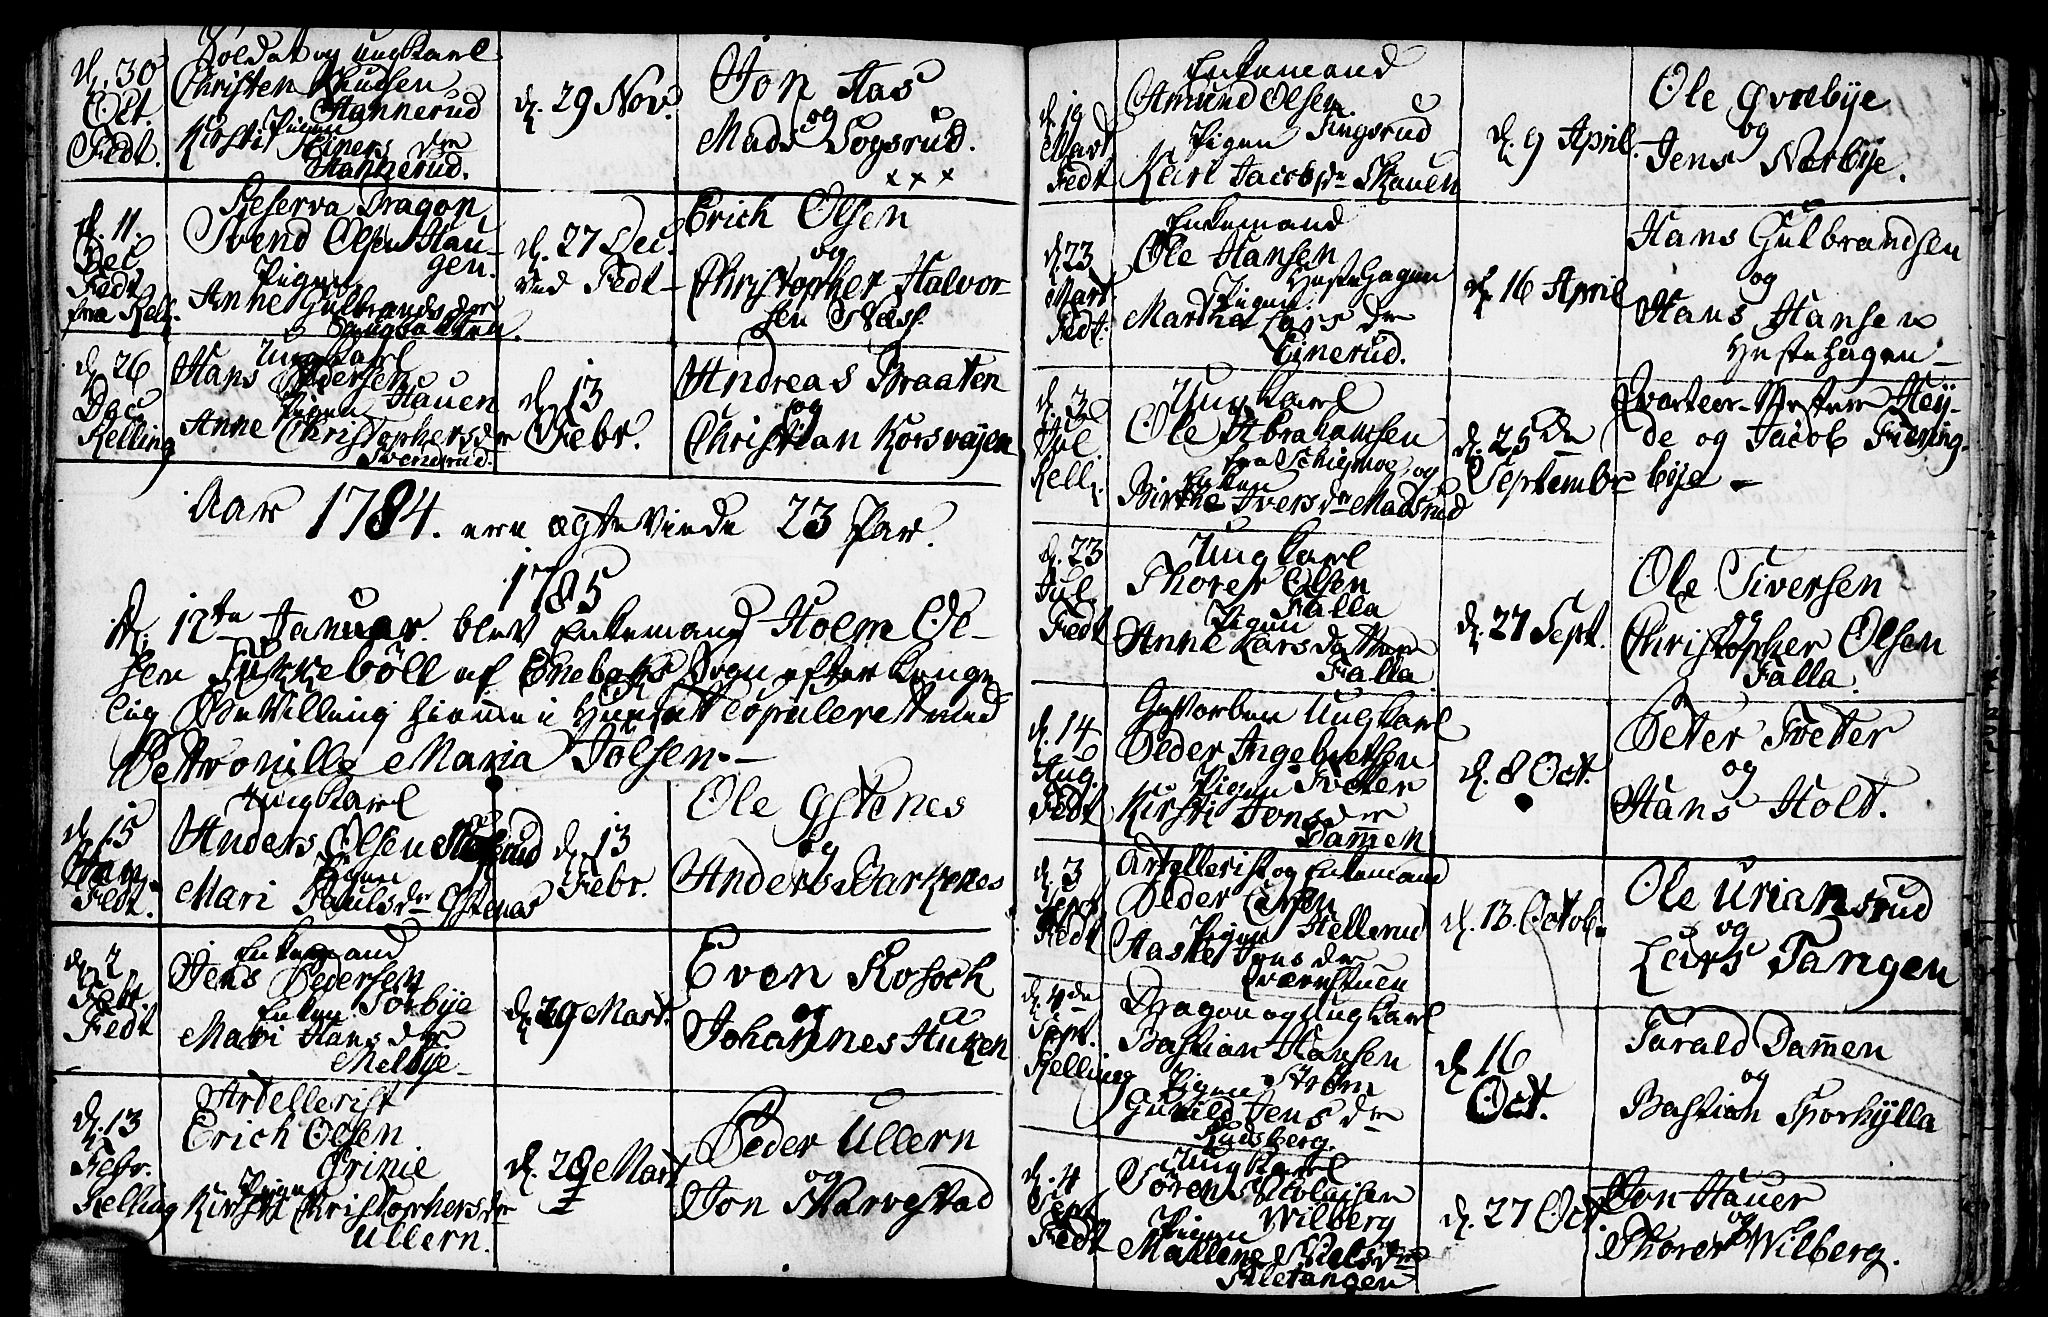 d. 30
Oct.
Fedt.
Soldat og ungkarl
Christen Knudsen
Hannerud
Pigen
Kirsti Einers dr
Hannerud.
d. 29 Nov.
Jon Aas
og
Mads Sogsrud.
d. 11.
Dec
Fedt
fra Rell.
Reserva Dragon
Svend Olsen Hau-
gen.
Pigen
Anne Gulbrands dr
d. 27 Dec.
ved Fedt
Erich Olsen
og
Christopher Halvor-
sen Næss.
d. 26
Dec.
Relling
Ungkarl
Hans Pedersen
Hauen
Pigen
Anne Christophersdr
Svenerud.
d. 13
Febr.
Andreas Braaten
og
Christian Korsvejen
Aar 1784. ere ægteviede 23 Par.
1785
d. 12te Januar. blev Enkemand Holm Ol-
sen Fukkebøll af Enebaks Sogn efter Konge
lig Bevilling hiemme i Huuset Copuleret med
Petronille Maria Tolsen.
d. 15
Jan.
Fedt.
Ungkarl
Anders Olsen
Pigen
Mari Paulsdr Østenes
d. 13
Febr.
Ole Østenes
og
Anders Barkenes
d. 2
Febr.
Fedt
Enkemand
Jens Pedersen
Sorbye
Enken
Mari Hans dr.
Melbye
d. 29 Mart.
Even Rosoch
og
Johannes Huken
d. 13
Febr.
Relling
Artellerist
Erich Olsen
Grinie
Pigen
Kirsti Christophersdr
Ullern.
d. 28 Mart
Peder Ullern
og
Jon Skarvestad
d. 19
Mart
Fedt
Enkemand
Amund Olsen
Tingsrud
Pigen
Kari Jacobsdr Skauen
d. 9 April.
Ole Øvrebye
og
Jens Norbye.
d. 23
Mart.
Fedt.
Enkemand
Ole Hansen
Hestehagen
Pigen
Martha Lars dr
Einerud.
d. 16 April
Hans Gulbrandsen
og
Hans Hansen
Hestehagen
d. 3
Jul.
Rell.
Ungkarl
Ole Abrahamsen
fra Schigmoe og
Enken
Birthe Iversdr Madsrud
d. 25de
September
Qvarteer-Mester Hey-
de og Jacob Fiering-
bye
d. 23
Jul.
Fedt
Ungkarl
Thorer Olsen
Falla
Pigen
Anne Larsdatter
Falla
d. 27 Sept.
Ole Siversen
og
Christopher Olsen
Falla.
d. 14
Aug.
Fedt
Gevorben Ungkarl
Peder Ingebretsen
Sæter
Pigen
Kirsti Jons dr
Dam̄en
d. 8 Oct.
Peter Sæter
og
Hans Holt.
d. 3
Sept
Fedt
Artellerist og Enkemand
Peder Larsen
Hellerud
Pigen
Aaste Jens dr
Qværnstuen
d. 13. Octob.
Ole Uriansrud
og
Lars Tangen
d. 4de
Sept.
Relling
Dragon og Ungkarl
Bastian Hansen
Strøm
Pigen
Gunild Jens dr
Rudsberg.
d. 16
Oct.
Tarald Dam̄en
og
Bastian Sporhylla
d. 4
Sept
Fedt
Ungkarl
Søren Nicolaisen
Wilberg
Pigen
Mallene Nielsdr
Sletangen
d. 27 Oct.
Jon Hauer
og
Thorer Wilberg.